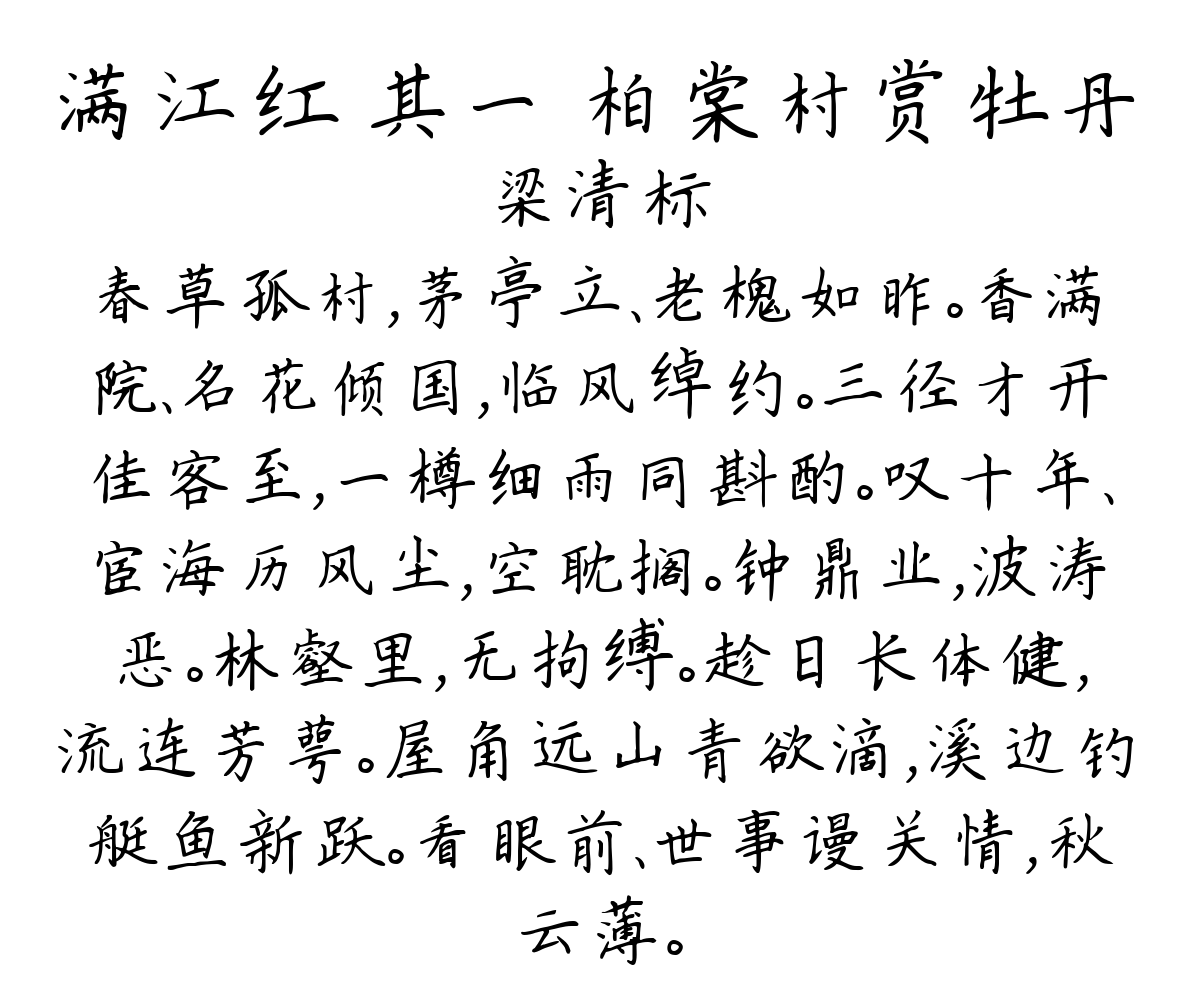 满江红 其一 柏棠村赏牡丹
梁清标
春草孤村,茅亭立、老槐如昨。香满
院、名花倾国,临风绰约。三径才开
佳客至,一樽细雨同斟酌。叹十年、
宦海历风尘,空耽搁。钟鼎业,波涛
恶。林壑里,无拘缚。趁日长体健,
流连芳萼。屋角远山青欲滴,溪边钓
艇鱼新跃。看眼前、世事谩关情,秋
云薄。